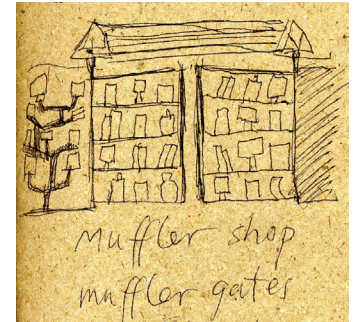 muffler shop
muffler gates